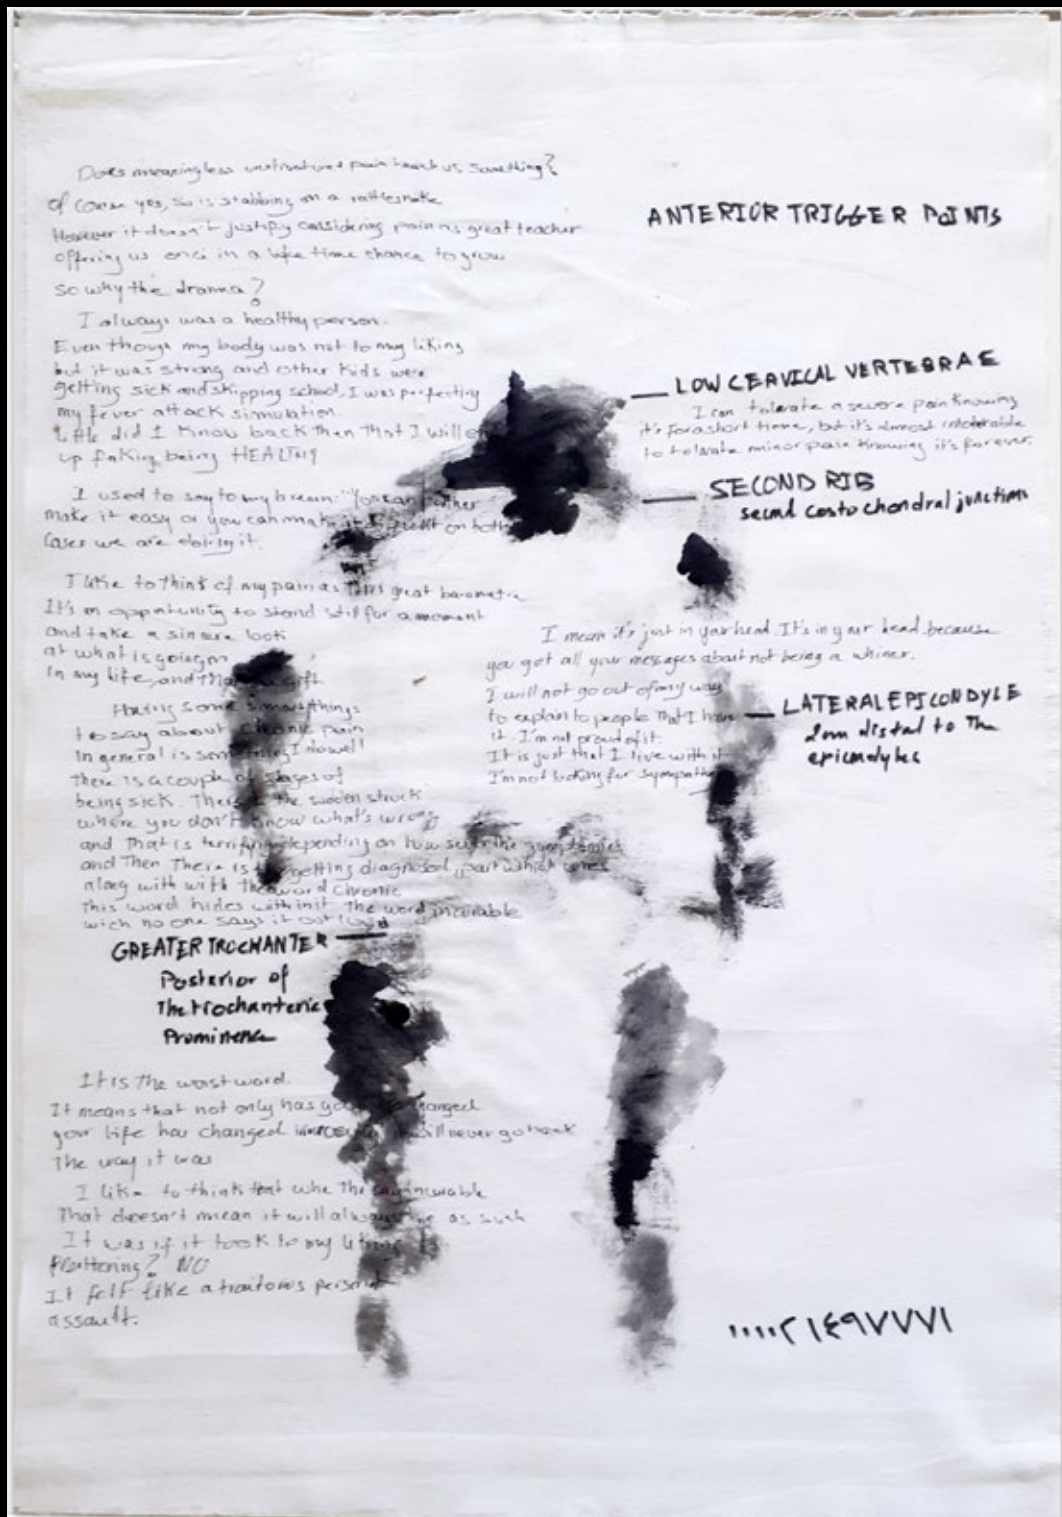 Does meaningless unstructured pain teach us something?
Of course yes, so is stabbing on a rattlesnake
However it doesn't justify considering pain as great teacher
offering us once in a life time chance to grow
so why the drama?
I always was a healthy person.
Even though my body was not to my liking
but it was strong and other kids were
getting sick and skipping school, I was perfecting
my fever attack simulation.
Little did I know back then that I will
up faking being HEALTHY
I used to say to my brain: "You can either
make it easy or you can make it on both
cases we are doing it.
I like to think of my pain as this great
It's an opportunity to stand still for a moment
and take a sincere look
at what is going on
in my life, and gift
Having some things
to say about chronic pain
in general is I do well
There is a couple of stages of
being sick. the sudden struck
where you don't know what's wrong
and that is terrifying depending on how the
and Then There is getting diagnosed, part which
along with with the word chronic
This word hides within it the word incurable
wich no one says it out
GREATER TROCHANTER
Posterior of
The trochanteric
Prominence
It is The worst word.
It means that not only has changed
your life has changed will never go back
The way it was
I like to think that The incurable
That doesn't mean it will as such
It was if it took to my liking
NO
It felt like a traitorous personal
assault.
ANTERIOR TRIGGER POINTS
LOW CERVICAL VERTEBRAE
I can tolerate a severe pain knowing
it's for a short time, but it's almost intolerable
to tolerate minor pain knowing it's forever.
SECOND RIB
second costochondral junctions
I mean it's just in your head. It's in your head because
you got all your messages about not being a whiner.
I will not go out of my way
to explain to people that I have
it. I'm not proud of it.
It is just that I live with it
I'm not looking for sympathy
LATERAL EPICONDYLE
2cm distal to The
epicondyles